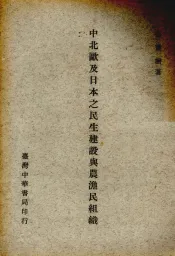 著
中北歐及日本之民生建設與農漁民組織
臺灣中華書局印行